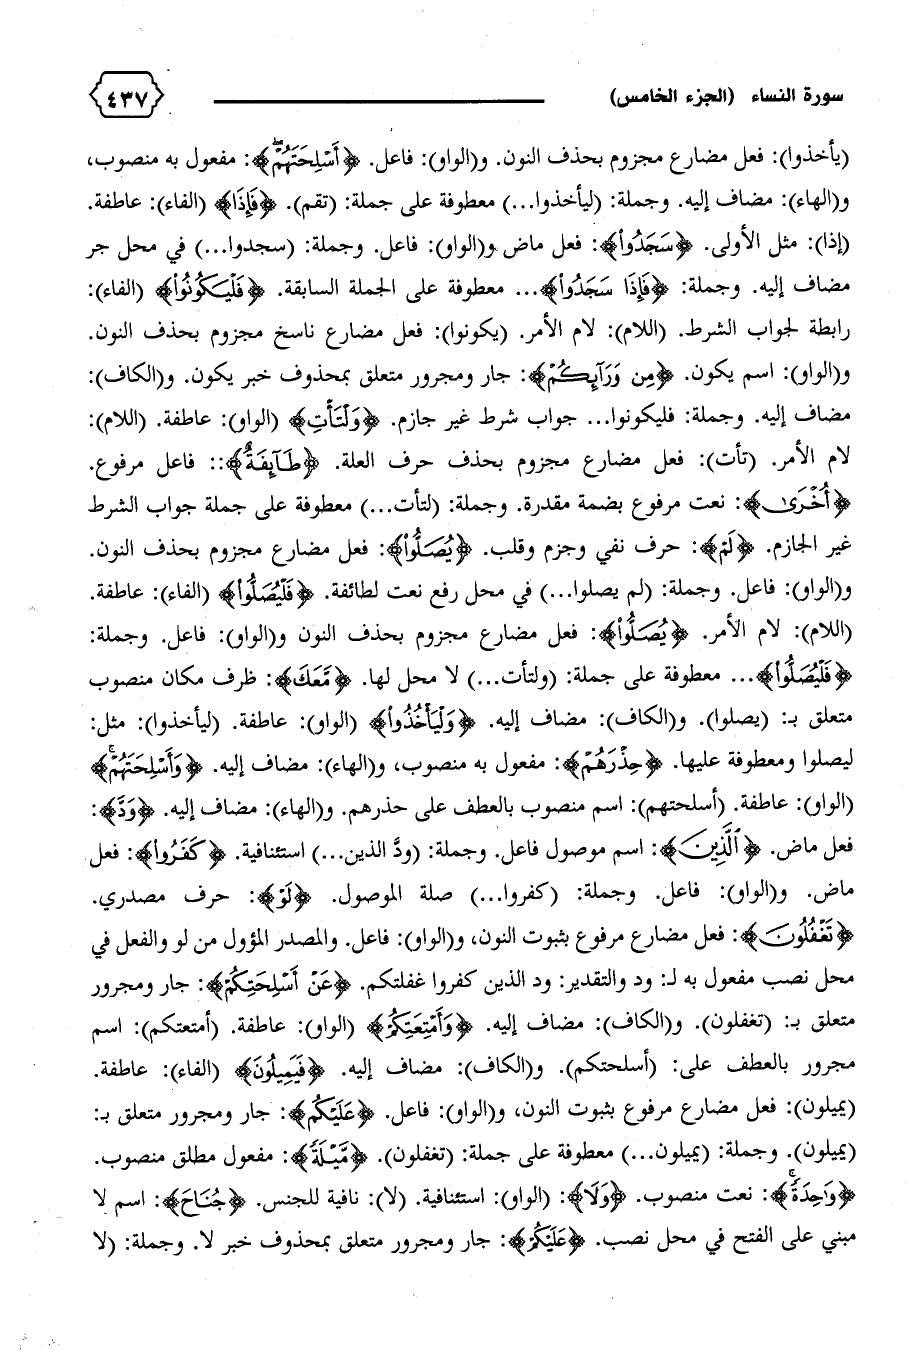 سورة النساء (الجزء الخامس)
٤٣٧
(يأخذوا): فعل مضارع مجزوم بحذف النون. و(الواو): فاعل. ﴿أَسْلِحَتَهُمْۖ﴾: مفعول به منصوب،
و(الهاء): مضاف إليه. وجملة: (ليأخذوا...) معطوفة على جملة: (تقم). ﴿فَإِذَا﴾ (الفاء): عاطفة.
(إذا): مثل الأولى. ﴿سَجَدُواْ﴾: فعل ماض و(الواو): فاعل. وجملة: (سجدوا...) في محل جر
مضاف إليه. وجملة: ﴿فَإِذَا سَجَدُواْ﴾... معطوفة على الجملة السابقة. ﴿فَلْيَكُونُواْ﴾ (الفاء):
رابطة لجواب الشرط. (اللام): لام الأمر. (يكونوا): فعل مضارع ناسخ مجزوم بحذف النون.
و(الواو): اسم يكون. ﴿مِن وَرَآئِكُمْ﴾: جار ومجرور متعلق بمحذوف خبر يكون. و(الكاف):
مضاف إليه. وجملة: فليكونوا... جواب شرط غير جازم. ﴿وَلْتَأْتِ﴾ (الواو): عاطفة. (اللام):
لام الأمر. (تأت): فعل مضارع مجزوم بحذف حرف العلة. ﴿طَآئِفَةٌ﴾:: فاعل مرفوع.
﴿أُخْرَىٰ﴾: نعت مرفوع بضمة مقدرة. وجملة: (لتأت...) معطوفة على جملة جواب الشرط
غير الجازم. ﴿لَمْ﴾: حرف نفي وجزم وقلب. ﴿يُصَلُّواْ﴾: فعل مضارع مجزوم بحذف النون.
و(الواو): فاعل. وجملة: (لم يصلوا...) في محل رفع نعت لطائفة. ﴿فَلْيُصَلُّواْ﴾ (الفاء): عاطفة.
(اللام): لام الأمر. ﴿يُصَلُّواْ﴾: فعل مضارع مجزوم بحذف النون و(الواو): فاعل. وجملة:
﴿فَلْيُصَلُّواْ﴾... معطوفة على جملة: (ولتأت...) لا محل لها. ﴿مَّعَكَ﴾: ظرف مكان منصوب
متعلق بـ: (يصلوا). و(الكاف): مضاف إليه. ﴿وَلْيَأْخُذُواْ﴾ (الواو): عاطفة. (ليأخذوا): مثل:
ليصلوا ومعطوفة عليها. ﴿حِذْرَهُمْ﴾: مفعول به منصوب، و(الهاء): مضاف إليه. ﴿وَأَسْلِحَتَهُمْۗ﴾
(الواو): عاطفة. (أسلحتهم): اسم منصوب بالعطف على حذرهم. و(الهاء): مضاف إليه. ﴿وَدَّ﴾:
فعل ماض. ﴿ٱلَّذِينَ﴾: اسم موصول فاعل. وجملة: (ودَّ الذين...) استئنافية. ﴿كَفَرُواْ﴾: فعل
ماض. و(الواو): فاعل. وجملة: (كفروا...) صلة الموصول. ﴿لَوْ﴾: حرف مصدري.
﴿تَغْفُلُونَ﴾: فعل مضارع مرفوع بثبوت النون، و(الواو): فاعل. والمصدر المؤول من لو والفعل في
محل نصب مفعول به لـ: ود والتقدير: ود الذين كفروا غفلتكم. ﴿عَنْ أَسْلِحَتِكُمْ﴾: جار ومجرور
متعلق بـ: (تغفلون). و(الكاف): مضاف إليه. ﴿وَأَمْتِعَتِكُمْ﴾ (الواو): عاطفة. (أمتعتكم): اسم
مجرور بالعطف على: (أسلحتكم). و(الكاف): مضاف إليه. ﴿فَيَمِيلُونَ﴾ (الفاء): عاطفة.
(يميلون): فعل مضارع مرفوع بثبوت النون، و(الواو): فاعل. ﴿عَلَيْكُم﴾: جار ومجرور متعلق بـ:
(يميلون). وجملة: (يميلون...) معطوفة على جملة: (تغفلون). ﴿مَّيْلَةً﴾: مفعول مطلق منصوب.
﴿وَٰحِدَةًۚ﴾: نعت منصوب. ﴿وَلَا﴾: (الواو): استئنافية. (لا): نافية للجنس. ﴿جُنَاحَ﴾: اسم لا
مبني على الفتح في محل نصب. ﴿عَلَيْكُمْ﴾: جار ومجرور متعلق بمحذوف خبر لا. وجملة: (لا